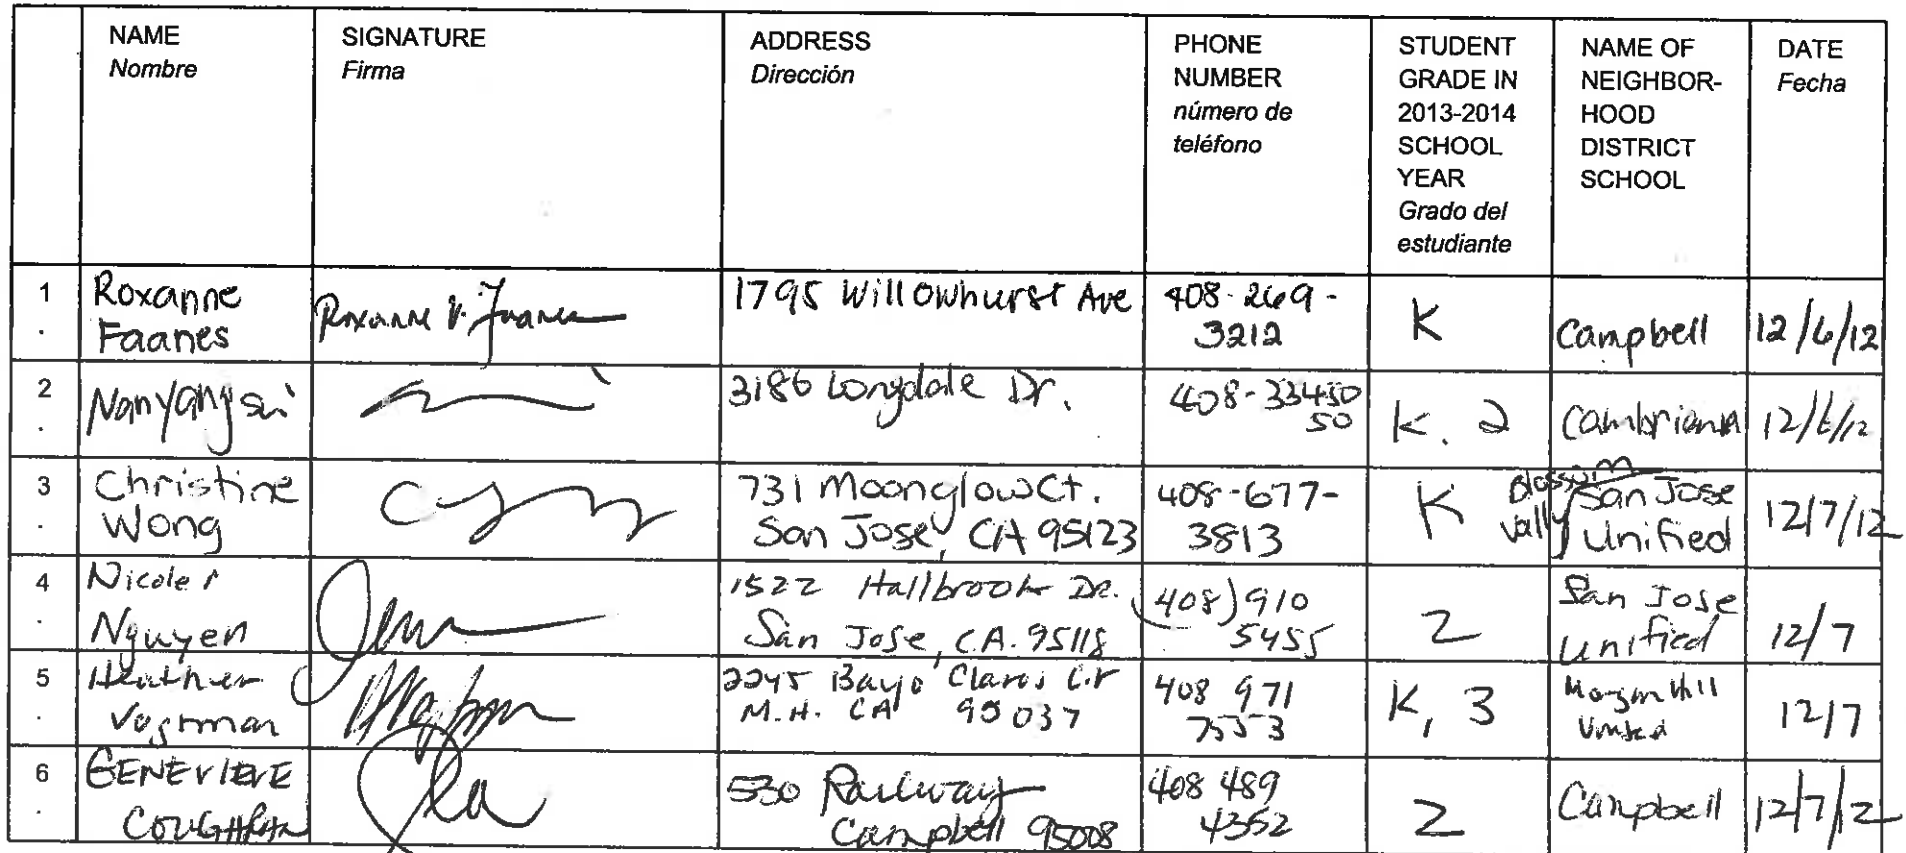 NAME
Nombre
SIGNATURE
Firma
ADDRESS
Dirección
PHONE
NUMBER
número de
teléfono
STUDENT
GRADE IN
2013-2014
SCHOOL
YEAR
Grado del
estudiante
NAME OF
NEIGHBOR-
HOOD
DISTRICT
SCHOOL
DATE
Fecha
1.
Roxanne
Faanes
Roxanne V. Faanes
1795 Willowhurst Ave
408-269-
3212
K
Campbell
12/6/12
2.
3186 Longdale Dr.
408-
50
K. 2
12/6/12
3.
Christine
Wong
731 Moonglow Ct.
San Jose, CA 95123
408-677-
3813
K
Blossom
Vally
San Jose
Unified
12/7/12
4.
Nicole
Nguyen
1522 Hallbrook Dr.
San Jose, CA. 95118
408) 910
5455
2
San Jose
Unified
12/7
5.
Heather
2245 Bayo Claros Cir
M.H. CA 95037
408 971
7553
K, 3
Morgan Hill
Unified
12/7
6.
GENEVIEVE
COUGHLAN
530 Railway
Campbell 95008
408 489
4352
2
Campbell
12/7/12